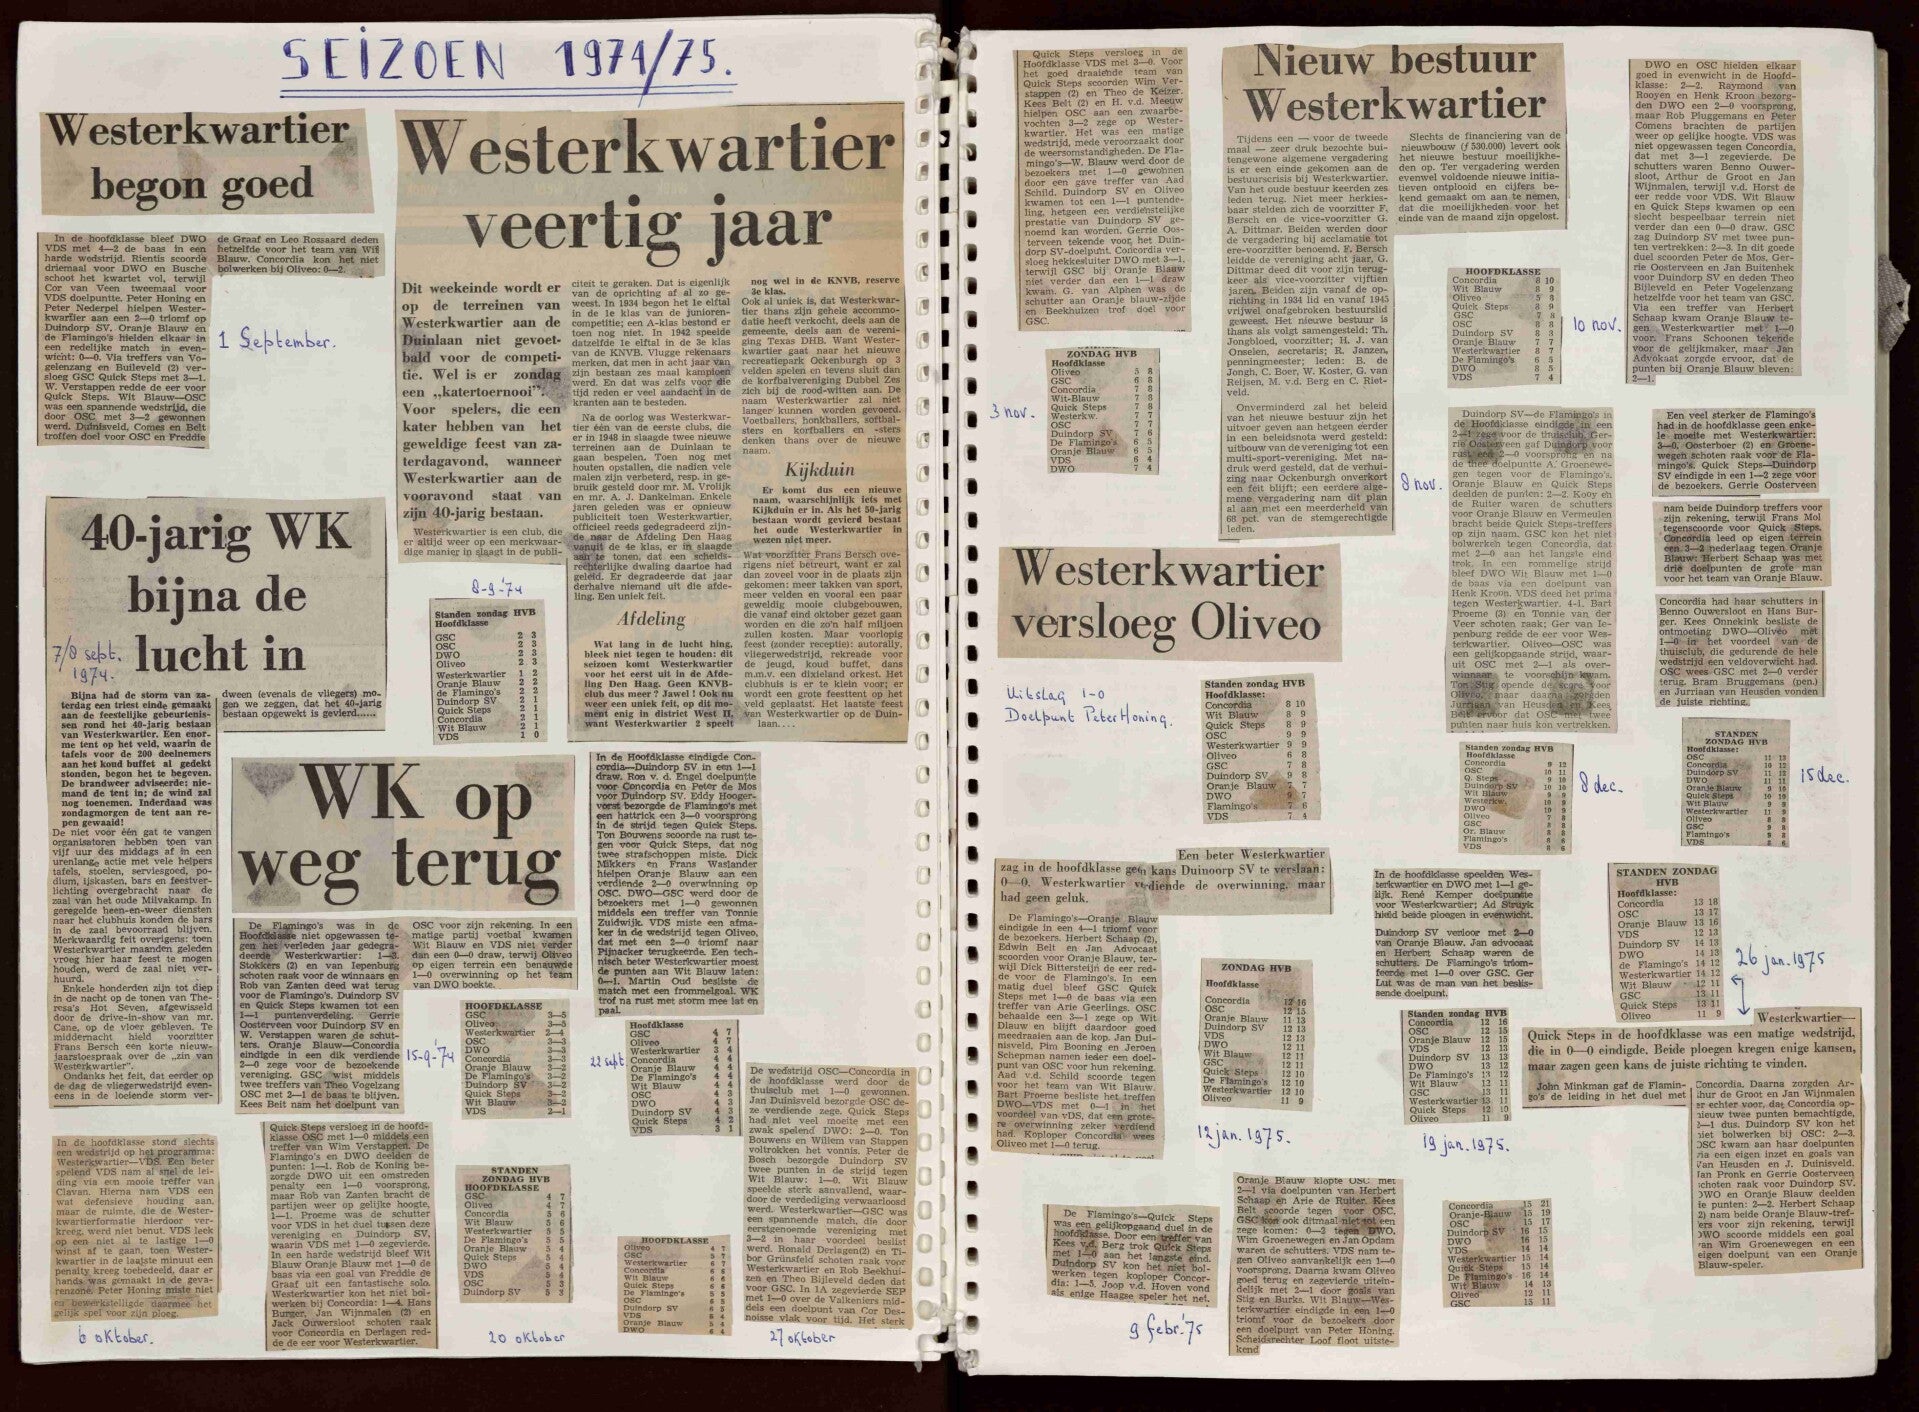 SEIZOEN 1974/75.
Westerkwartier
begon goed
In de hoofdklasse bleef DWO
VDS met 4—2 de baas in een
harde wedstrijd. Rientis scoorde
driemaal voor DWO en Busche
schoot het kwartet vol, terwijl
Cor van Veen tweemaal voor
VDS doelpunte. Peter Honing en
Peter Nederpel hielpen Wester-
kwartier aan een 2—0 triomf op
Duindorp SV. Oranje Blauw en
de Flamingo's hielden elkaar in
een redelijke match in even-
wicht: 0—0. Via treffers van Vo-
gelenzang en Buileveld (2) ver-
sloeg GSC Quick Steps met 3—1.
W. Verstappen redde de eer voor
Quick Steps. Wit Blauw—OSC
was een spannende wedstrijd, die
door OSC met 3—2 gewonnen
werd. Duinisveld, Comes en Belt
troffen doel voor OSC en Freddie
de Graaf en Leo Rossaard deden
hetzelfde voor het team van Wit
Blauw. Concordia kon het niet
bolwerken bij Oliveo: 0—2.
1 September.
40-jarig WK
bijna de
lucht in
7/8 sept.
1974.
Bijna had de storm van za-
terdag een triest einde gemaakt
aan de feestelijke gebeurtenis-
sen rond het 40-jarig bestaan
van Westerkwartier. Een enor-
me tent op het veld, waarin de
tafels voor de 200 deelnemers
aan het koud buffet al gedekt
stonden, begon het te begeven.
De brandweer adviseerde: nie-
mand de tent in; de wind zal
nog toenemen. Inderdaad was
zondagmorgen de tent aan re-
pen gewaaid!
De niet voor één gat te vangen
organisatoren hebben toen van
vijf uur des middags af in een
urenlange actie met vele helpers
tafels, stoelen, serviesgoed, po-
dium, ijskasten, bars en feestver-
lichting overgebracht naar de
zaal van het oude Milvakamp. In
geregelde heen-en-weer diensten
naar het clubhuis konden de bars
in de zaal bevoorraad blijven.
Merkwaardig feit overigens: toen
Westerkwartier maanden geleden
vroeg hier haar feest te mogen
houden, werd de zaal niet ver-
huurd.
Enkele honderden zijn tot diep
in de nacht op de tonen van The-
resa's Hot Seven, afgewisseld
door de drive-in-show van mr.
Cane, op de vloer gebleven. Te
middernacht hield voorzitter
Frans Bersch een korte nieuw-
jaarstoespraak over de „zin van
Westerkwartier".
Ondanks het feit, dat eerder op
de dag de vliegerwedstrijd even-
eens in de loeiende storm ver-
dween (evenals de vliegers) mo-
gen we zeggen, dat het 40-jarig
bestaan opgewekt is gevierd......
Westerkwartier
veertig jaar
Dit weekeinde wordt er
op de terreinen van
Westerkwartier aan de
Duinlaan niet gevoet-
bald voor de competi-
tie. Wel is er zondag
een „katertoernooi".
Voor spelers, die een
kater hebben van het
geweldige feest van za-
terdagavond, wanneer
Westerkwartier aan de
vooravond staat van
zijn 40-jarig bestaan.
Westerkwartier is een club, die
er altijd weer op een merkwaar-
dige manier in slaagt in de publi-
citeit te geraken. Dat is eigenlijk
van de oprichting af al zo ge-
weest. In 1934 begon het 1e elftal
in de 1e klas van de junioren-
competitie; een A-klas bestond er
toen nog niet. In 1942 speelde
datzelfde 1e elftal in de 3e klas
van de KNVB. Vlugge rekenaars
merken, dat men in acht jaar van
zijn bestaan zes maal kampioen
werd. En dat was zelfs voor die
tijd reden er veel aandacht in de
kranten aan te besteden.
Na de oorlog was Westerkwar-
tier één van de eerste clubs, die
er in 1948 in slaagde twee nieuwe
terreinen aan de Duinlaan te
gaan bespelen. Toen nog met
houten opstallen, die nadien vele
malen zijn verbeterd, resp. in ge-
bruik gesteld door mr. M. Vrolijk
en mr. A. J. Dankelman. Enkele
jaren geleden was er opnieuw
publiciteit toen Westerkwartier,
officieel reeds gedegradeerd zijn-
de naar de Afdeling Den Haag
vanuit de 4e klas, er in slaagde
aan te tonen, dat een scheids-
rechterlijke dwaling daartoe had
geleid. Er degradeerde dat jaar
derhalve niemand uit die afde-
ling. Een uniek feit.
Afdeling
Wat lang in de lucht hing,
bleek niet tegen te houden: dit
seizoen komt Westerkwartier
voor het eerst uit in de Afde-
ling Den Haag. Geen KNVB-
club dus meer? Jawel! Ook nu
weer een uniek feit, op dit mo-
ment enig in district West II,
want Westerkwartier 2 speelt
nog wel in de KNVB, reserve
3e klas.
Ook al uniek is, dat Westerkwar-
tier thans zijn gehele accommo-
datie heeft verkocht, deels aan de
gemeente, deels aan de vereni-
ging Texas DHB. Want Wester-
kwartier gaat naar het nieuwe
recreatiepark Ockenburgh op 3
velden spelen en tevens sluit dan
de korfbalvereniging Dubbel Zes
zich bij de rood-witten aan. De
naam Westerkwartier zal niet
langer kunnen worden gevoerd.
Voetballers, honkballers, softbal-
sters en korfballers en -sters
denken thans over de nieuwe
naam.
Kijkduin
Er komt dus een nieuwe
naam, waarschijnlijk iets met
Kijkduin er in. Als het 50-jarig
bestaan wordt gevierd bestaat
het oude Westerkwartier in
wezen niet meer.
Wat voorzitter Frans Bersch ove-
rigens niet betreurt, want er zal
dan zoveel voor in de plaats zijn
gekomen: meer takken van sport,
meer velden en vooral een paar
geweldig mooie clubgebouwen,
die vanaf eind oktober gezet gaan
worden en die zo'n half miljoen
zullen kosten. Maar voorlopig
feest (zonder receptie): autorally,
vliegerwedstrijd, rekreade voor
de jeugd, koud buffet, dans
m.m.v. een dixieland orkest. Het
clubhuis is er te klein voor; er
wordt een grote feesttent op het
veld geplaatst. Het laatste feest
van Westerkwartier op de Duin-
laan....
8-9-'74
Standen zondag HVB
Hoofdklasse
GSC 2 3
OSC 2 3
DWO 2 3
Oliveo 2 3
Westerkwartier 1 2
Oranje Blauw 2 2
de Flamingo's 2 2
Duindorp SV 2 1
Quick Steps 2 1
Concordia 2 1
Wit Blauw 2 1
VDS 1 0
WK op
weg terug
De Flamingo's was in de
Hoofdklasse niet opgewassen te-
gen het verleden jaar gedegra-
deerde Westerkwartier: 1—3.
Stokkers (2) en van Iepenburg
schoten raak voor de winnaars en
Rob van Zanten deed wat terug
voor de Flamingo's. Duindorp SV
en Quick Steps kwamen tot een
1—1 puntenverdeling. Gerrie
Oosterveen voor Duindorp SV en
W. Verstappen waren de schut-
ters. Oranje Blauw—Concordia
eindigde in een dik verdiende
2—0 zege voor de bezoekende
vereniging. GSC wist middels
twee treffers van Theo Vogelzang
OSC met 2—1 de baas te blijven.
Kees Belt nam het doelpunt van
OSC voor zijn rekening. In een
matige partij voetbal kwamen
Wit Blauw en VDS niet verder
dan een 0—0 draw, terwijl Oliveo
op eigen terrein een benauwde
1—0 overwinning op het team
van DWO boekte.
15-9-'74
HOOFDKLASSE
GSC 3—5
Oliveo 3—5
Westerkwartier 2—4
OSC 3—3
DWO 3—3
Concordia 3—3
Oranje Blauw 3—2
De Flamingo's 3—2
Duindorp SV 3—2
Quick Steps 3—2
Wit Blauw 3—2
VDS 2—1
In de Hoofdklasse eindigde Con-
cordia—Duindorp SV in een 1—1
draw. Ron v.d. Engel doelpuntte
voor Concordia en Peter de Mos
voor Duindorp SV. Eddy Hooger-
vorst bezorgde de Flamingo's met
een hattrick een 3—0 voorsprong
in de strijd tegen Quick Steps.
Ton Bouwens scoorde na rust te-
gen voor Quick Steps, dat nog
twee strafschoppen miste. Dick
Mikkers en Frans Waslander
hielpen Oranje Blauw aan een
verdiende 2—0 overwinning op
OSC. DWO—GSC werd door de
bezoekers met 1—0 gewonnen
middels een treffer van Tonnie
Zuidwijk. VDS miste een afma-
ker in de wedstrijd tegen Oliveo,
dat met een 2—0 triomf naar
Pijnacker terugkeerde. Een tech-
nisch beter Westerkwartier moest
de punten aan Wit Blauw laten:
0—1. Martin Oud besliste de
match met een frommelgoal. WK
trof na rust met storm mee lat en
paal.
22 sept.
Hoofdklasse
GSC 4 7
Oliveo 4 7
Westerkwartier 3 4
Concordia 4 4
Oranje Blauw 4 4
De Flamingo's 4 4
Wit Blauw 4 4
OSC 4 3
DWO 4 3
Duindorp SV 4 3
Quick Steps 4 2
VDS 3 1
In de hoofdklasse stond slechts
een wedstrijd op het programma:
Westerkwartier—VDS. Een beter
spelend VDS nam al snel de lei-
ding via een mooie treffer van
Clavan. Hierna nam VDS een
wat defensieve houding aan,
maar de ruimte, die de Wester-
kwartierformatie hierdoor ver-
kreeg, werd niet benut. VDS leek
op een niet al te lastige 1—0
winst af te gaan, toen Wester-
kwartier in de laatste minuut een
penalty kreeg toebedeeld, daar er
hands was gemaakt in de geva-
renzone. Peter Honing miste niet
en bewerkstelligde daarmee het
gelijk spel voor zijn ploeg.
6 oktober.
Quick Steps versloeg in de hoofd-
klasse OSC met 1—0 middels een
treffer van Wim Verstappen. De
Flamingo's en DWO deelden de
punten: 1—1. Rob de Koning be-
zorgde DWO uit een omstreden
penalty een 1—0 voorsprong,
maar Rob van Zanten bracht de
partijen weer op gelijke hoogte,
1—1. Proeme was de schutter
voor VDS in het duel tussen deze
vereniging en Duindorp SV,
waarin VDS met 1—0 zegevierde.
In een harde wedstrijd bleef Wit
Blauw Oranje Blauw met 1—0 de
baas via een goal van Freddie de
Graaf uit een fantastische solo.
Westerkwartier kon het niet bol-
werken bij Concordia: 1—4. Hans
Burger, Jan Wijnmalen (2) en
Jack Ouwersloot schoten raak
voor Concordia en Derlagen red-
de de eer voor Westerkwartier.
STANDEN
ZONDAG HVB
HOOFDKLASSE
GSC 4 7
Oliveo 4 7
Concordia 5 6
Wit Blauw 5 6
Westerkwartier 5 5
De Flamingo's 5 5
Oranje Blauw 5 4
Quick Steps 5 4
DWO 5 4
VDS 5 4
OSC 5 3
Duindorp SV 5 3
20 oktober
HOOFDKLASSE
Oliveo 4 7
GSC 5 7
Westerkwartier 6 7
Concordia 6 6
Wit Blauw 6 6
Quick Steps 6 6
De Flamingo's 5 5
OSC 6 5
Duindorp SV 6 5
VDS 6 5
Oranje Blauw 5 4
DWO 6 4
De wedstrijd OSC—Concordia in
de hoofdklasse werd door de
thuisclub met 1—0 gewonnen.
Jan Duinisveld bezorgde OSC de-
ze verdiende zege. Quick Steps
had niet veel moeite met een
zwak spelend DWO: 2—0. Ton
Bouwens en Willem van Stappen
voltrokken het vonnis. Peter de
Bosch bezorgde Duindorp SV
twee punten in de strijd tegen
Wit Blauw: 1—0. Wit Blauw
speelde sterk aanvallend, waar-
door de verdediging verwaarloosd
werd. Westerkwartier—GSC was
een spannende match, die door
eerstgenoemde vereniging met
3—2 in haar voordeel beslist
werd. Ronald Derlagen(2) en Ti-
bor Grünsfeld schoten raak voor
Westerkwartier en Rob Beekhui-
zen en Theo Bijleveld deden dat
voor GSC. In 1A zegevierde SEP
met 1—0 over de Valkeniers mid-
dels een doelpunt van Cor Des-
noisse vlak voor tijd. Het sterk
27 oktober
Quick Steps versloeg in de
Hoofdklasse VDS met 3—0. Voor
het goed draaiende team van
Quick Steps scoorden Wim Ver-
stappen (2) en Theo de Keizer.
Kees Belt (2) en H. v.d. Meeuw
hielpen OSC aan een zwaarbe-
vochten 3—2 zege op Wester-
kwartier. Het was een matige
wedstrijd, mede veroorzaakt door
de weersomstandigheden. De Fla-
mingo's—W. Blauw werd door de
bezoekers met 1—0 gewonnen
door een gave treffer van Aad
Schild. Duindorp SV en Oliveo
kwamen tot een 1—1 puntende-
ling, hetgeen een verdienstelijke
prestatie van Duindorp SV ge-
noemd kan worden. Gerrie Oos-
terveen tekende voor het Duin-
dorp SV-doelpunt. Concordia ver-
sloeg hekkesluiter DWO met 3—1,
terwijl GSC bij Oranje Blauw
niet verder dan een 1—1 draw
kwam. G. van Alphen was de
schutter aan Oranje blauw-zijde
en Beekhuizen trof doel voor
GSC.
3 nov.
ZONDAG HVB
Hoofdklasse
Oliveo 5 8
GSC 6 8
Concordia 7 8
Wit-Blauw 7 8
Quick Steps 7 8
Westerkw. 7 7
OSC 7 7
Duindorp SV 7 6
De Flamingo's 6 5
Oranje Blauw 6 5
VDS 6 4
DWO 7 4
Nieuw bestuur
Westerkwartier
Tijdens een — voor de tweede
maal — zeer druk bezochte bui-
tengewone algemene vergadering
is er een einde gekomen aan de
bestuurscrisis bij Westerkwartier.
Van het oude bestuur keerden zes
leden terug. Niet meer herkies-
baar stelden zich de voorzitter F.
Bersch en de vice-voorzitter G.
A. Dittmar. Beiden werden door
de vergadering bij acclamatie tot
ere-voorzitter benoemd. F. Bersch
leidde de vereniging acht jaar, G.
Dittmar deed dit voor zijn terug-
keer als vice-voorzitter vijftien
jaren. Beiden zijn vanaf de op-
richting in 1934 lid en vanaf 1945
vrijwel onafgebroken bestuurslid
geweest. Het nieuwe bestuur is
thans als volgt samengesteld: Th.
Jongbloed, voorzitter; H. J. van
Onselen, secretaris; R. Janzen,
penningmeester; leden: J. B. de
Jongh, C. Boer, W. Koster, G. van
Reijsen, M. v.d. Berg en C. Riet-
veld.
Onverminderd zal het beleid
van het nieuwe bestuur zijn het
uitvoer geven aan hetgeen eerder
in een beleidsnota werd gesteld:
uitbouw van de vereniging tot een
multi-sport-vereniging. Met na-
druk werd gesteld, dat de verhui-
zing naar Ockenburgh onverkort
een feit blijft; een eerdere alge-
mene vergadering nam dit plan
al aan met een meerderheid van
68 pct. van de stemgerechtigde
leden.
Slechts de financiering van de
nieuwbouw (ƒ 530.000) levert ook
het nieuwe bestuur moeilijkhe-
den. Ter vergadering werden
evenwel voldoende nieuwe initia-
tieven ontplooid en cijfers be-
kend gemaakt om aan te nemen,
dat de moeilijkheden voor het
einde van de maand zijn opgelost.
HOOFDKLASSE
Concordia 8 10
Wit Blauw 8 9
Oliveo 5 8
Quick Steps 8 9
GSC 7 8
OSC 8 8
Duindorp SV 8 8
Oranje Blauw 7 7
Westerkwartier 8 7
De Flamingo's 6 5
DWO 8 5
VDS 7 4
10 nov.
DWO en OSC hielden elkaar
goed in evenwicht in de Hoofd-
klasse: 2—2. Raymond van
Rooyen en Henk Kroon bezorg-
den DWO een 2—0 voorsprong,
maar Rob Pluggemans en Peter
Comens brachten de partijen
weer op gelijke hoogte. VDS was
niet opgewassen tegen Concordia,
dat met 3—1 zegevierde. De
schutters waren Benno Ouwer-
sloot, Arthur de Groot en Jan
Wijnmalen, terwijl v.d. Horst de
eer voor VDS redde. Wit Blauw
en Quick Steps kwamen op een
slecht bespeelbaar terrein niet
verder dan een 0—0 draw. GSC
zag Duindorp SV met twee pun-
ten vertrekken: 2—3. In dit goede
duel scoorden Peter de Mos, Ger-
rie Oosterveen en Jan Buitenhek
voor Duindorp SV en deden Theo
Bijleveld en Peter Vogelenzang
hetzelfde voor het team van GSC.
Via een treffer van Herbert
Schaap kwam Oranje Blauw te-
gen Westerkwartier met 1—0
voor. Frans Schoonen tekende
voor de gelijkmaker, maar Jan
Advokaat zorgde ervoor, dat de
punten bij Oranje Blauw bleven:
2—1.
Westerkwartier
versloeg Oliveo
Uitslag 1-0
Doelpunt Peter Honing.
Standen zondag HVB
Hoofdklasse:
Concordia 8 10
Wit Blauw 8 9
Quick Steps 8 9
OSC 9 9
Westerkwartier 9 9
Oliveo 6 8
GSC 7 8
Duindorp SV 9 8
Oranje Blauw 7 7
DWO 9 7
Flamingo's 7 6
VDS 7 4
8 nov.
Duindorp SV—de Flamingo's in
de Hoofdklasse eindigde in een
2—1 zege voor de thuisclub. Ger-
rie Oosterveen gaf Duindorp voor
rust een 2—0 voorsprong en na
de thee doelpuntte A. Groenewe-
gen tegen voor de Flamingo's.
Oranje Blauw en Quick Steps
deelden de punten: 2—2. Kooy en
de Ruiter waren de schutters
voor Oranje Blauw en Vermeulen
bracht beide Quick Steps-treffers
op zijn naam. GSC kon het niet
bolwerken tegen Concordia, dat
met 2—0 aan het langste eind
trok. In een rommelige strijd
bleef DWO Wit Blauw met 1—0
de baas via een doelpunt van
Henk Kroon. VDS deed het prima
tegen Westerkwartier. 4-1. Bart
Proeme (3) en Tonnie van der
Veer schoten raak; Ger van Ie-
penburg redde de eer voor Wes-
terkwartier. Oliveo—OSC was
een gelijkopgaande strijd, waar-
uit OSC met 2—1 als over-
winnaar te voorschijn kwam.
Ton Stig opende de score voor
Oliveo, maar daarna zorgden
Jurriaan van Heusden en Kees
Belt ervoor dat OSC met twee
punten naar huis kon vertrekken.
Standen zondag HVB
Hoofdklasse
Concordia 9 12
OSC 10 11
Q. Steps 9 10
Duindorp SV 10 10
Wit Blauw 9 9
Westerkw. 10 9
DWO 10 9
Oliveo 7 8
GSC 8 8
Or. Blauw 8 8
Flamingo's 8 6
VDS 8 6
8 dec.
Een veel sterker de Flamingo's
had in de hoofdklasse geen enke-
le moeite met Westerkwartier:
3—0. Oosterboer (2) en Groene-
wegen schoten raak voor de Fla-
mingo's. Quick Steps—Duindorp
SV eindigde in een 1—2 zege voor
de bezoekers. Gerrie Oosterveen
nam beide Duindorp treffers voor
zijn rekening, terwijl Frans Mol
tegenscoorde voor Quick Steps.
Concordia leed op eigen terrein
een 3—2 nederlaag tegen Oranje
Blauw: Herbert Schaap was met
drie doelpunten de grote man
voor het team van Oranje Blauw.
Concordia had haar schutters in
Benno Ouwersloot en Hans Bur-
ger. Kees Onnekink besliste de
ontmoeting DWO—Oliveo met
1—0 in het voordeel van de
thuisclub, die gedurende de hele
wedstrijd een veldoverwicht had.
OSC wees GSC met 2—0 verder
terug. Bram Bruggemans (pen.)
en Jurriaan van Heusden vonden
de juiste richting.
STANDEN
ZONDAG HVB
Hoofdklasse:
OSC 11 13
Concordia 10 12
Duindorp SV 11 12
DWO 11 11
Oranje Blauw 9 10
Quick Steps 10 10
Wit Blauw 9 9
Westerkwartier 11 9
Oliveo 8 8
GSC 9 8
Flamingo's 9 8
VDS 8 6
15 dec.
Een beter Westerkwartier
zag in de hoofdklasse geen kans Duindorp SV te verslaan:
0—0. Westerkwartier verdiende de overwinning, maar
had geen geluk.
De Flamingo's—Oranje Blauw
eindigde in een 4—1 triomf voor
de bezoekers. Herbert Schaap (2),
Edwin Belt en Jan Advocaat
scoorden voor Oranje Blauw, ter-
wijl Dick Bittersteijn de eer red-
de voor de Flamingo's. In een
matig duel bleef GSC Quick
Steps met 1—0 de baas via een
treffer van Arie Geerlings. OSC
behaalde een 3—1 zege op Wit
Blauw en blijft daardoor goed
meedraaien aan de kop. Jan Dui-
nisveld, Pim Booning en Jeroen
Schepman namen ieder een doel-
punt van OSC voor hun rekening.
Aad v.d. Schild scoorde tegen
voor het team van Wit Blauw.
Bart Proeme besliste het treffen
DWO—VDS met 0—1 in het
voordeel van VDS, dat een grote-
re overwinning zeker verdiend
had. Koploper Concordia wees
Oliveo met 1—0 terug.
ZONDAG HVB
Hoofdklasse
Concordia 12 16
OSC 12 15
Oranje Blauw 11 13
Duindorp SV 12 13
VDS 12 13
DWO 12 11
Wit Blauw 12 11
GSC 12 11
Quick Steps 12 10
De Flamingo's 12 10
Westerkwartier 12 10
Oliveo 11 9
12 jan. 1975.
In de hoofdklasse speelden Wes-
terkwartier en DWO met 1—1 ge-
lijk. René Kemper doelpuntte
voor Westerkwartier; Ad Struyk
hield beide ploegen in evenwicht.
Duindorp SV verloor met 2—0
van Oranje Blauw. Jan advocaat
en Herbert Schaap waren de
schutters. De Flamingo's triom-
feerde met 1—0 over GSC. Ger
Lut was de man van het beslis-
sende doelpunt.
Standen zondag HVB
Concordia 12 16
OSC 12 15
Oranje Blauw 12 15
VDS 12 13
Duindorp SV 13 13
DWO 13 12
De Flamingo's 13 12
Wit Blauw 12 11
GSC 13 11
Westerkwartier 13 11
Quick Steps 12 10
Oliveo 11 9
19 jan. 1975.
STANDEN ZONDAG
HVB
Hoofdklasse:
Concordia 13 18
OSC 13 17
Oranje Blauw 13 16
VDS 12 13
Duindorp SV 14 13
DWO 14 13
de Flamingo's 14 12
Westerkwartier 14 12
Wit Blauw 12 11
GSC 13 11
Quick Steps 13 11
Oliveo 11 9
26 jan. 1975
Westerkwartier—
Quick Steps in de hoofdklasse was een matige wedstrijd,
die in 0—0 eindigde. Beide ploegen kregen enige kansen,
maar zagen geen kans de juiste richting te vinden.
John Minkman gaf de Flamin-
go's de leiding in het duel met
Concordia. Daarna zorgden Ar-
thur de Groot en Jan Wijnalen
er echter voor, dat Concordia op-
nieuw twee punten bemachtigde,
1—1 dus. Duindorp SV kon het
niet bolwerken bij OSC: 2—3.
OSC kwam aan haar doelpunten
via een eigen inzet en goals van
Van Heusden en J. Duinisveld.
Jan Pronk en Gerrie Oosterveen
schoten raak voor Duindorp SV.
DWO en Oranje Blauw deelden
de punten: 2—2. Herbert Schaap
(2) nam beide Oranje Blauw-tref-
fers voor zijn rekening, terwijl
DWO scoorde middels een goal
van Wim Groenewegen en een
eigen doelpunt van een Oranje
Blauw-speler.
De Flamingo's—Quick Steps
was een gelijkopgaand duel in de
hoofdklasse. Door een treffer van
Kees v.d. Berg trok Quick Steps
met 1—0 aan het langste eind.
Duindorp SV kon het niet bol-
werken tegen koploper Concor-
dia: 1—5. Joop v.d. Hoven vond
als enige Haagse speler het net.
9 febr. '75
Oranje Blauw klopte OSC met
2—1 via doelpunten van Herbert
Schaap en Arie de Ruiter. Kees
Belt scoorde tegen voor OSC.
GSC kon ook ditmaal niet tot een
zege komen: 0—3 tegen DWO.
Wim Groenewegen en Jan Opdam
waren de schutters. VDS nam te-
gen Oliveo aanvankelijk een 1—0
voorsprong. Daarna kwam Oliveo
goed terug en zegevierde uitein-
delijk met 2—1 door goals van
Stig en Burks. Wit Blauw—Wes-
terkwartier eindigde in een 1—0
triomf voor de bezoekers door
een doelpunt van Peter Honing.
Scheidsrechter Loof floot uitste-
kend
Concordia 15 21
Oranje-Blauw 15 19
OSC 15 17
Duindorp SV 16 15
DWO 16 15
VDS 14 14
Westerkwartier 15 14
Quick Steps 15 14
De Flamingo's 16 14
Wit Blauw 14 13
Oliveo 12 11
GSC 15 11